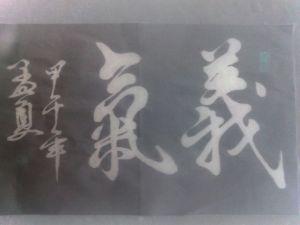 義氣
甲午年
孟夏